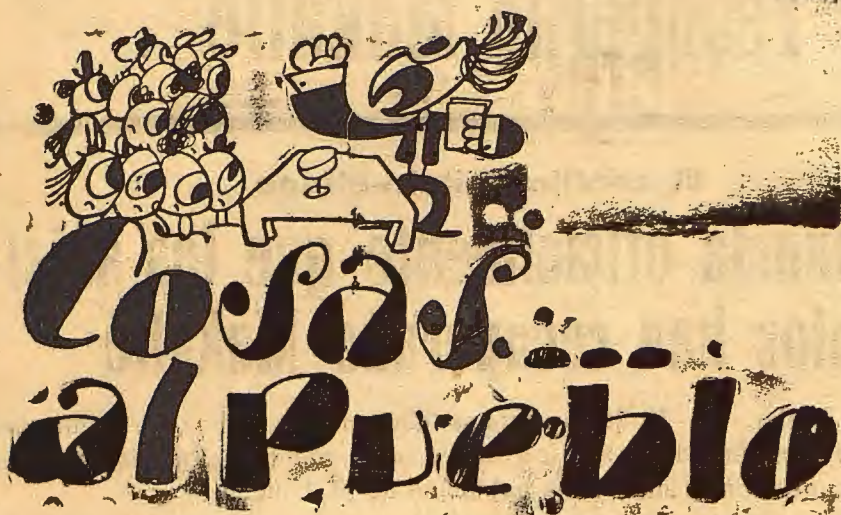 Cosas....
al Pueblo